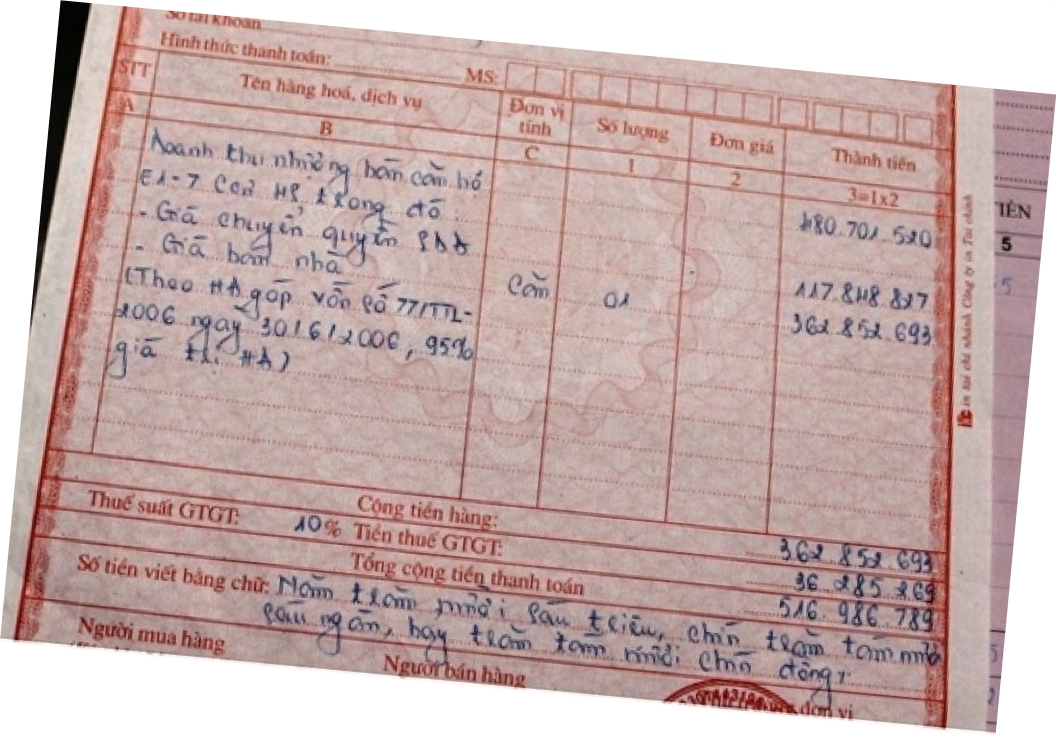 Số tài khoản
Hình thức thanh toán: MS:
STT Tên hàng hoá, dịch vụ Đơn vị tính Số lượng Đơn giá Thành tiền
A B C 1 2 3=1x2
Doanh thu nhượng bán căn hộ 480.701.520
E1-7 CC2 HS trong đó:
- Giá chuyển quyền SDĐ 117.848.827
- Giá bán nhà căn 01 362.852.693
(Theo HĐ góp vốn số 77/TTL-
2006 ngày 30/6/2006, 95%
giá trị HĐ)
Cộng tiền hàng: 362.852.693
Thuế suất GTGT: 10% Tiền thuế GTGT: 36.285.269
Tổng cộng tiền thanh toán 516.986.789
Số tiền viết bằng chữ: Năm trăm mười sáu triệu, chín trăm tám mươi
sáu ngàn, bảy trăm tám mươi chín đồng
Người mua hàng Người bán hàng đơn vị
In tại chi nhánh Công ty in Tài chính
TIỀN
5